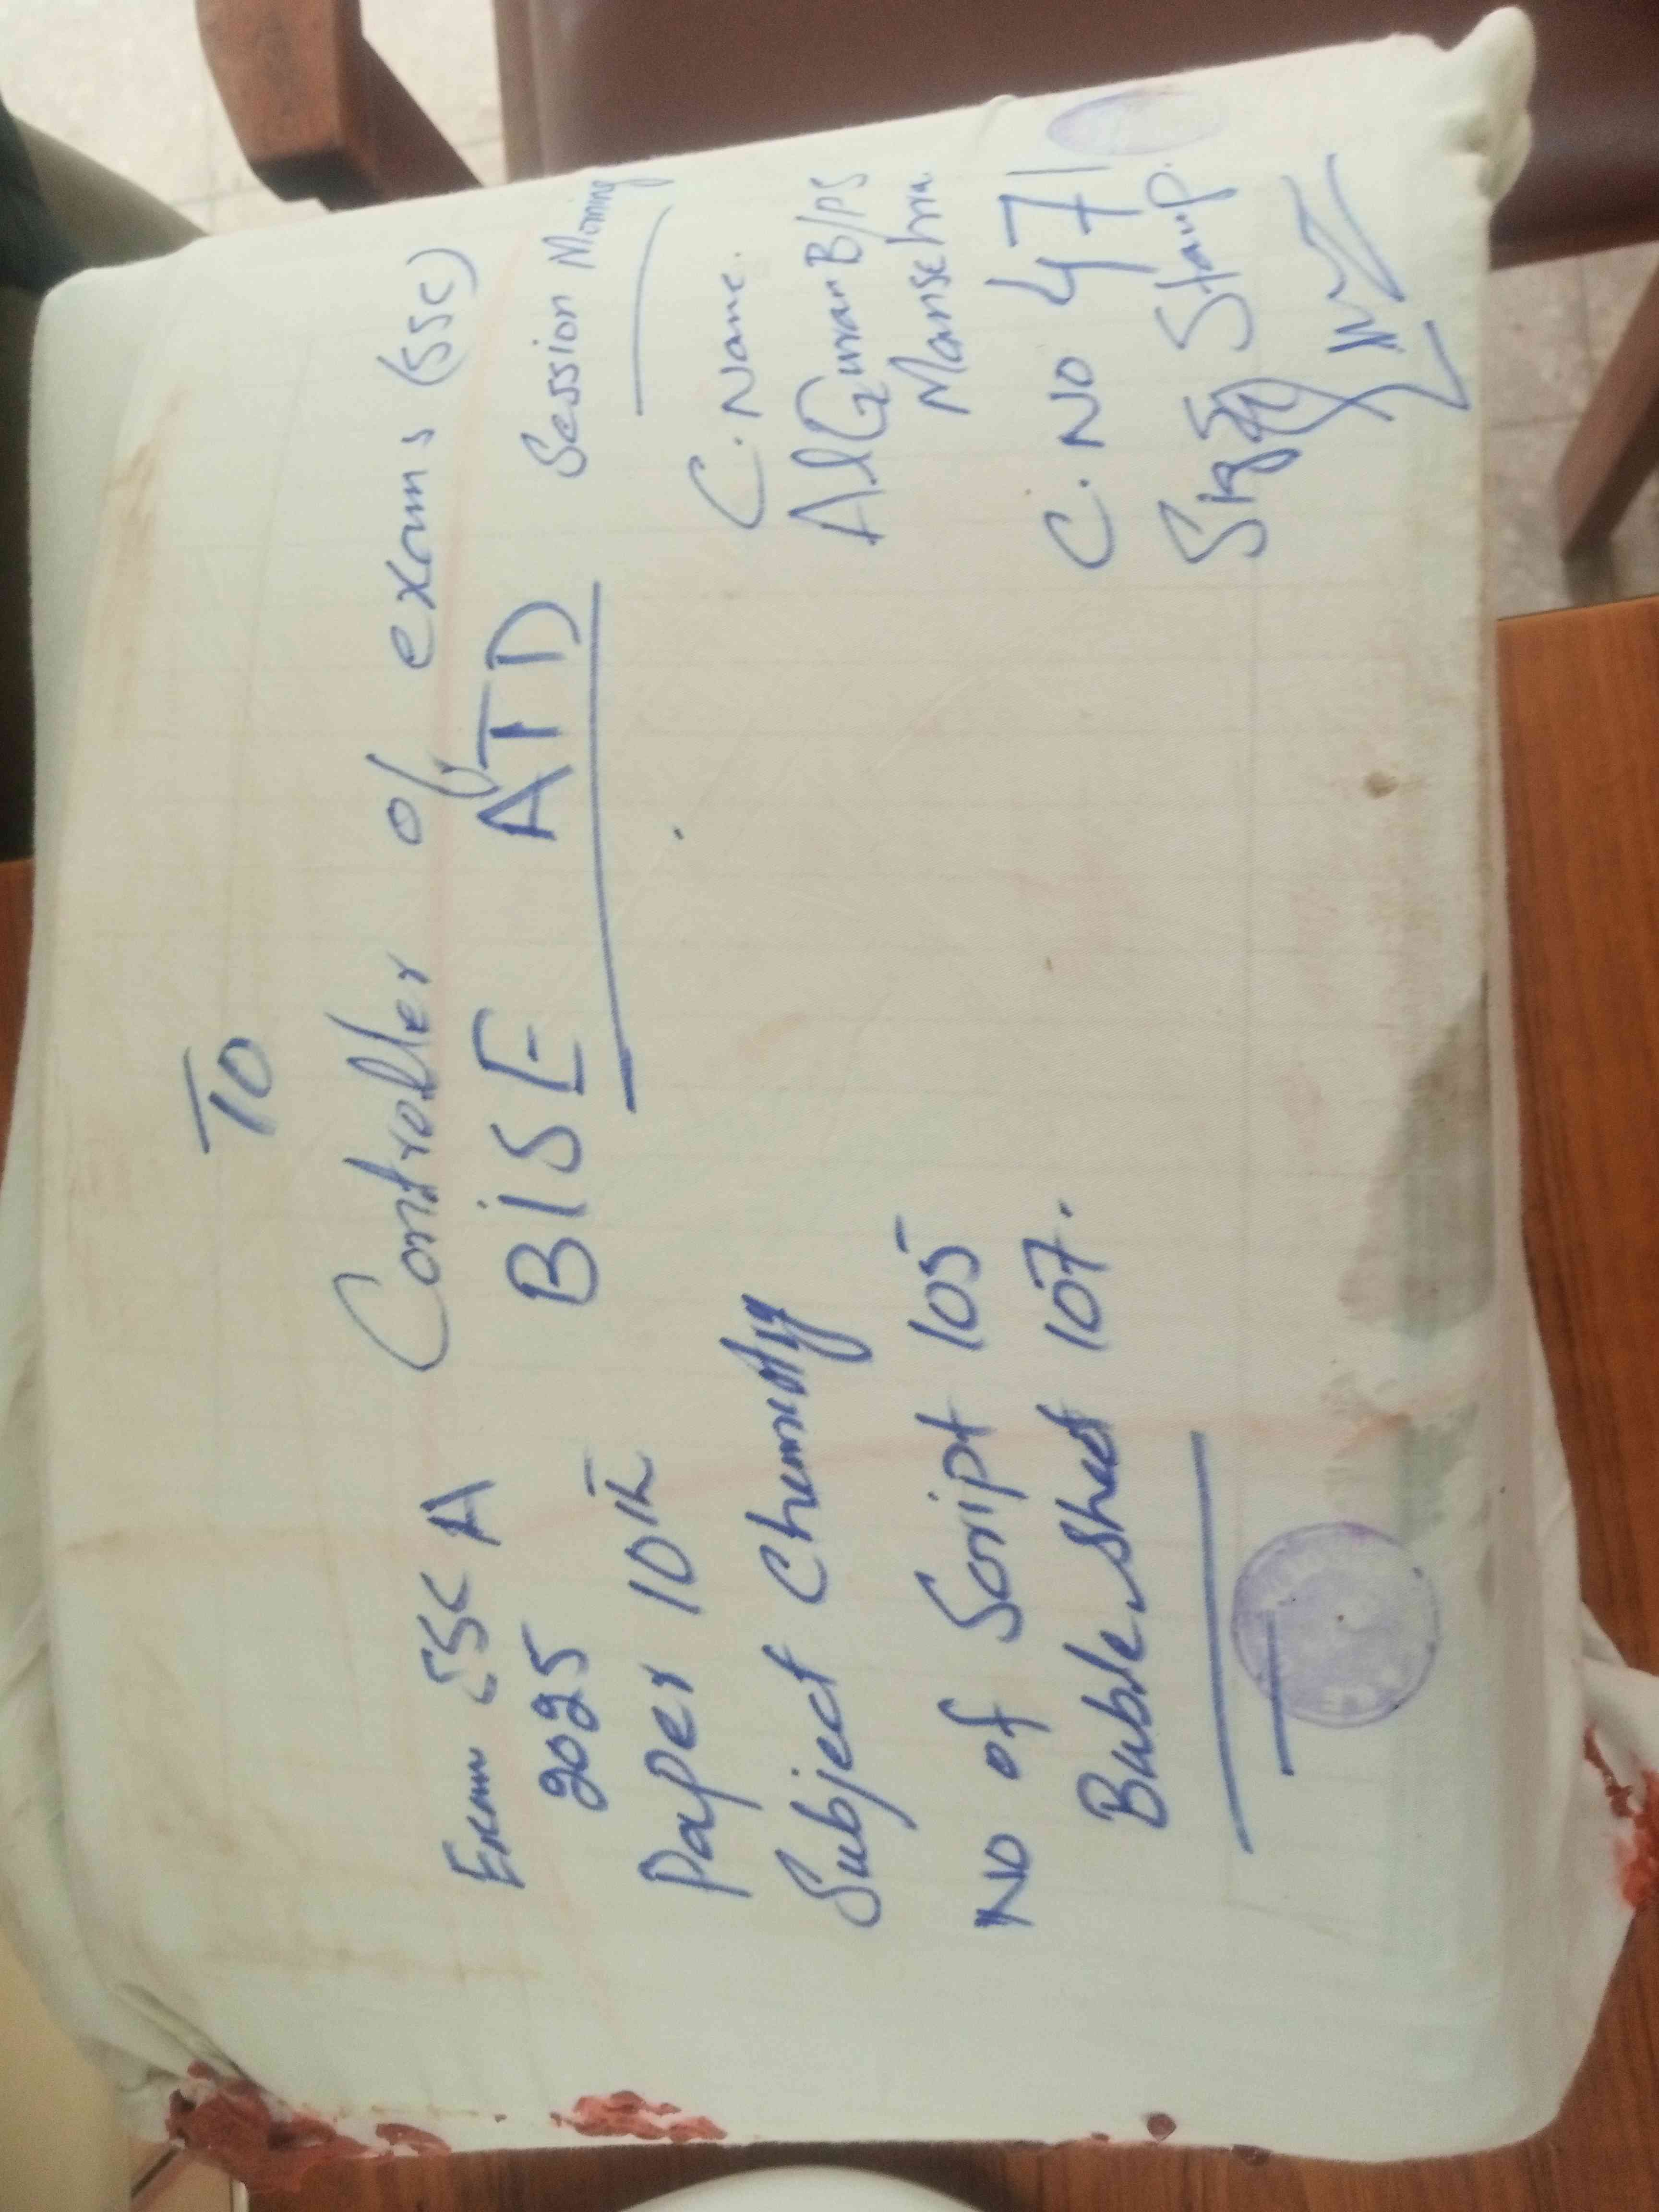 To
Controller of exams (SSC)
BISE ATD
Exam SSC A
2025
Paper 10th
Subject Chemistry
No of Script 105
Bubble sheet 107.
Session Morning
C. Name.
Al Guman B/PS
Mansehra.
C. No 471
Sig Stamp.